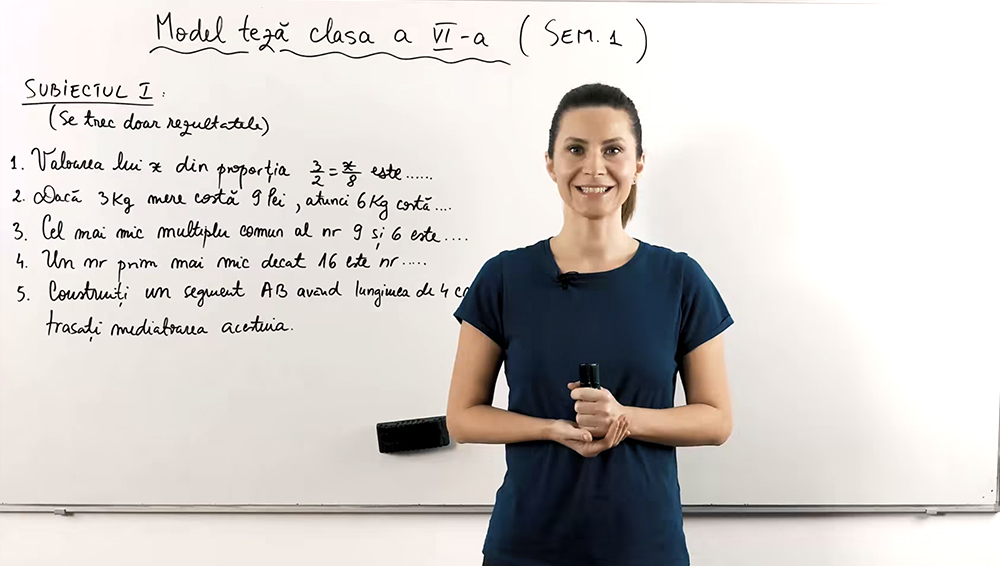 Model teză clasa a VI-a (SEM. 1)
SUBIECTUL I :
(Se trec doar rezultatele)
1. Valoarea lui x din proporția 3/2 = x/8 este......
2. Dacă 3Kg mere costă 9 lei, atunci 6Kg costă....
3. Cel mai mic multiplu comun al nr 9 și 6 este....
4. Un nr prim mai mic decat 16 este nr.....
5. Construiți un segment AB având lungimea de 4
trasați mediatoarea acestuia.